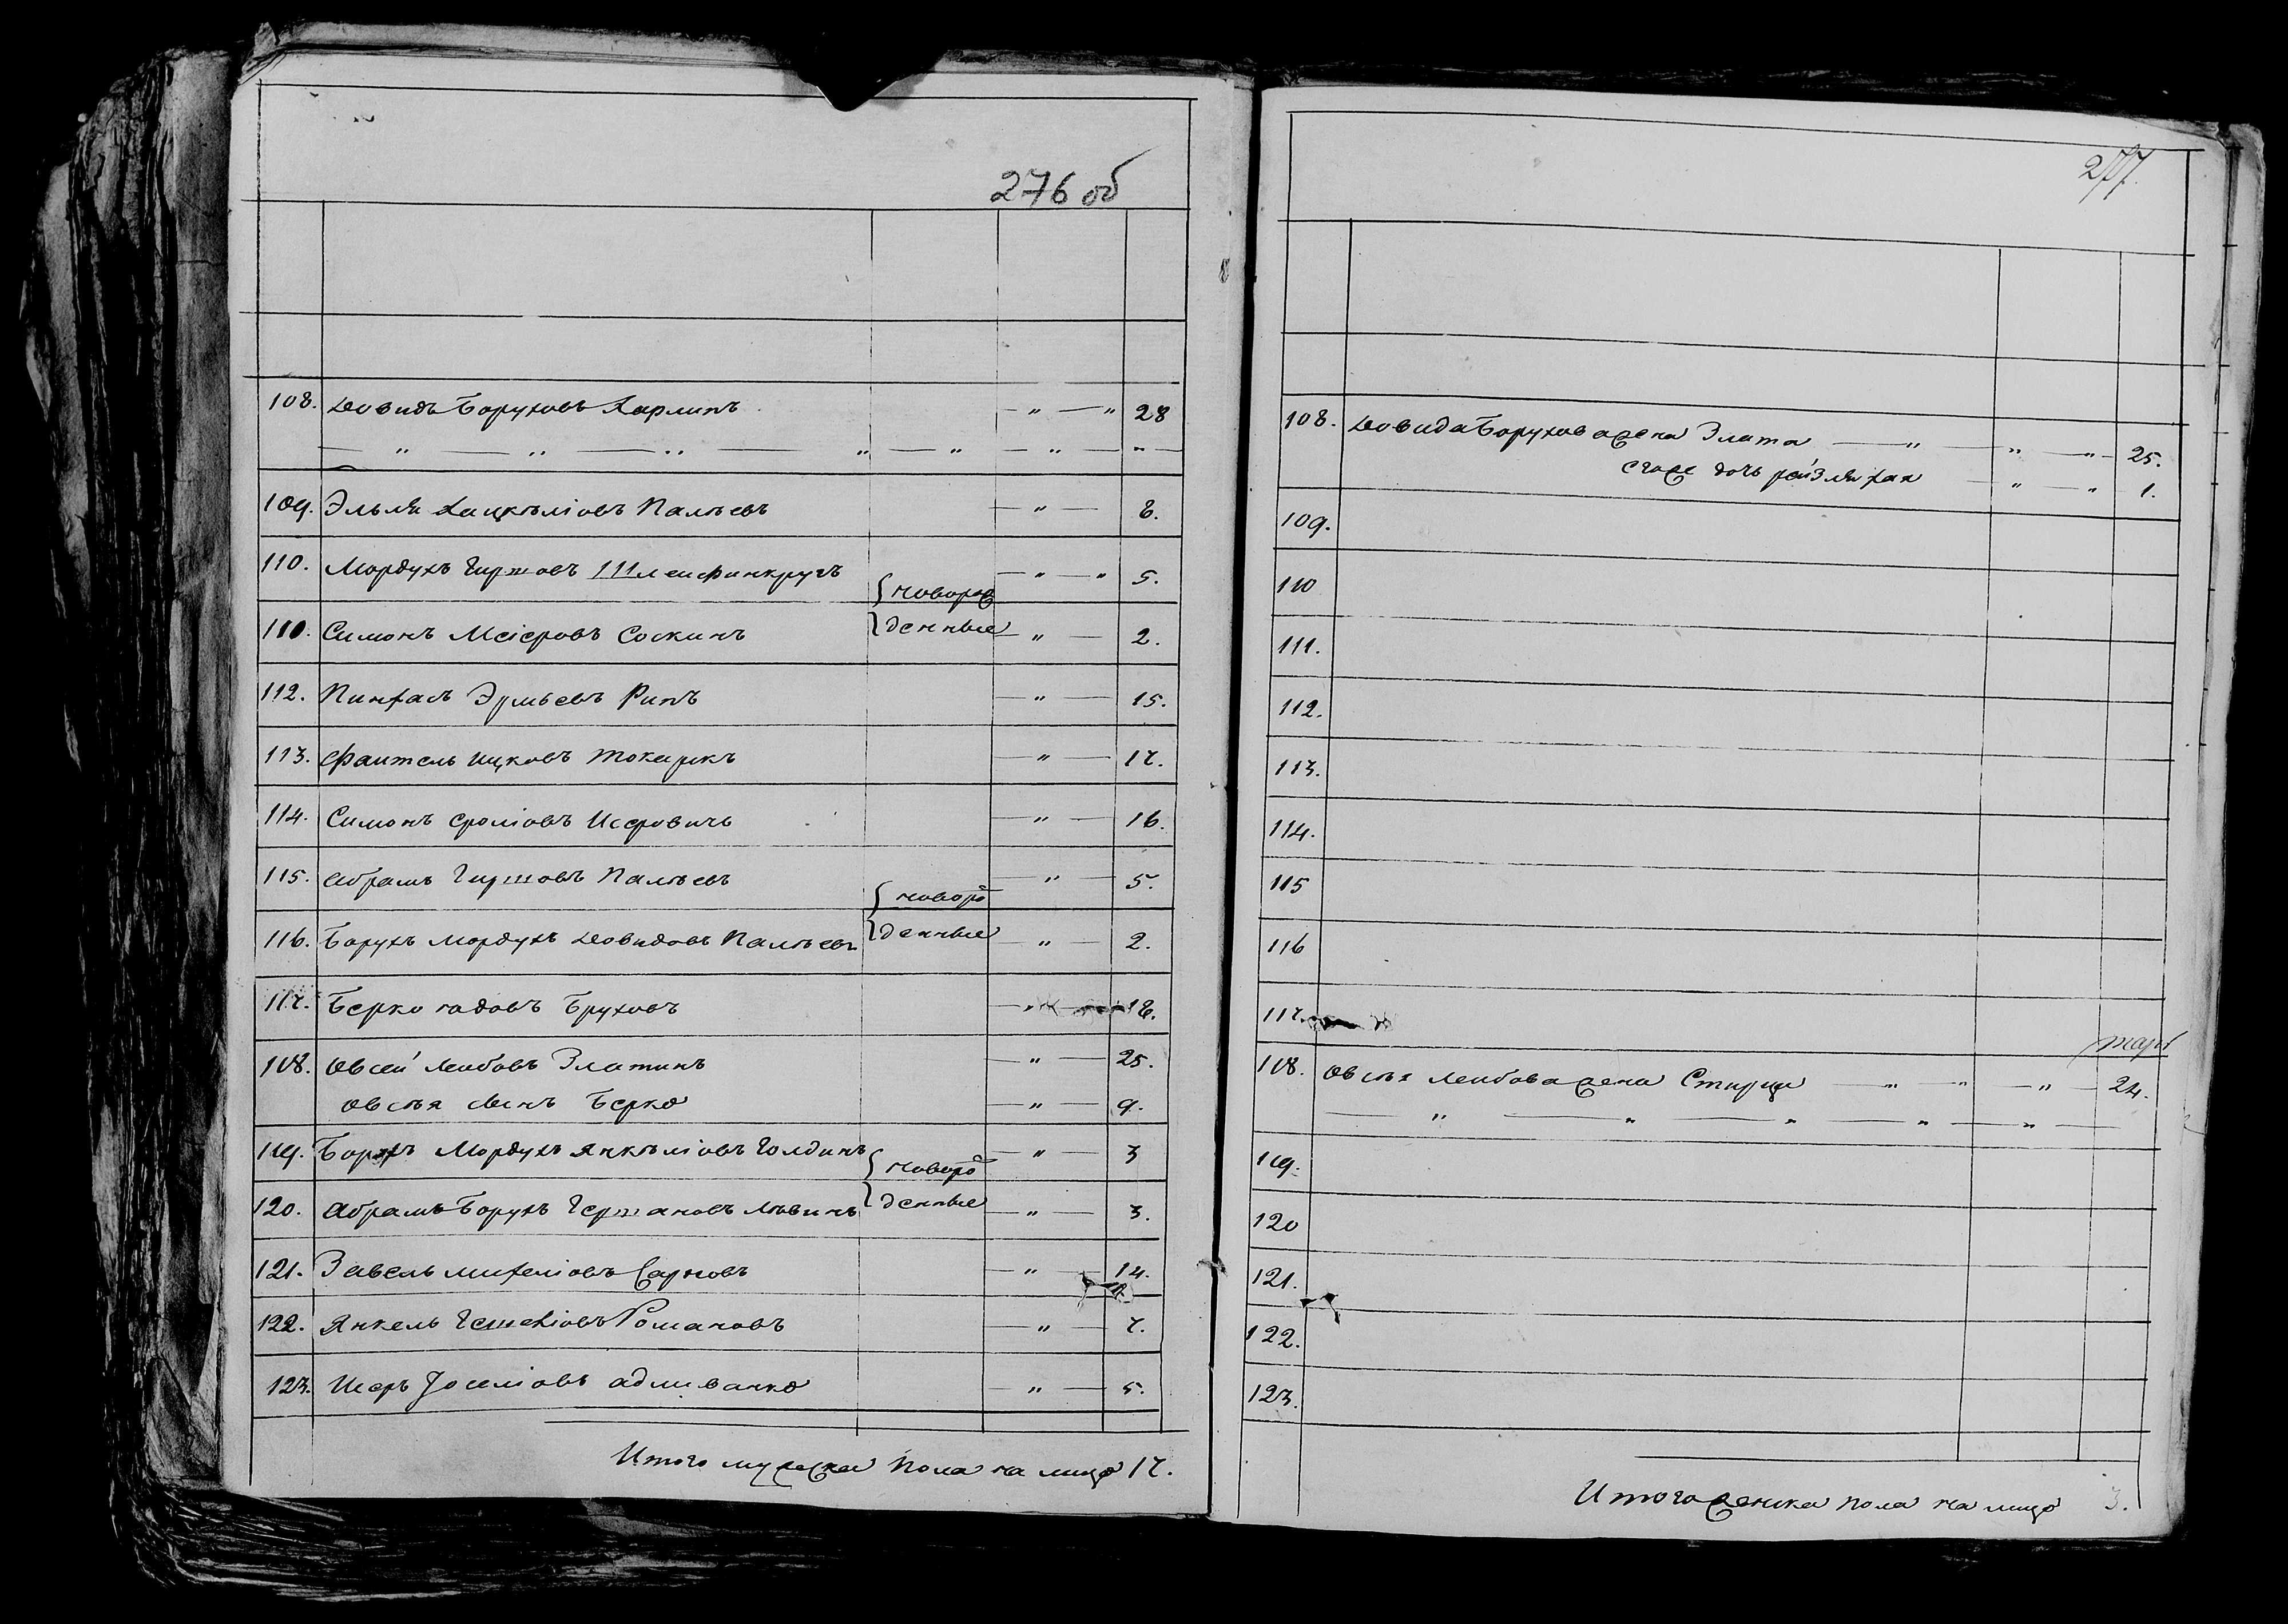 276 об
108. Довидъ Боруховъ Карлинъ — " — " 28
— " — " — " — " — " — " —
109. Элья Хацкѣліовъ Палѣевъ — " — 8.
110. Мордухъ Гиршовъ Шлеифинкругъ — " — " 5.
{новорож
110. Симонъ Меіеровъ Соскинъ денные — " — 2.
112. Пинхасъ Эрльевъ Рипъ — " — 15.
113. Фаитель Ицковъ Токарикъ — " — 17.
114. Симонъ Сроліовъ Исеровичъ — " — 16.
115. Абрамъ Гиршовъ Палѣевъ — " — 5.
{новоро
116. Борухъ Мордухъ Довидовъ Палѣевъ денные — " — 2.
117. Берко Гадовъ Бруховъ — " — 18.
118. Овсей Леибовъ Златинъ — " — 25.
Овсѣя сынъ Берко — " — 9.
119. Борухъ Мордухъ Янкѣліовъ Голдинъ — " — 3
{новоро
120. Абрамъ Борухъ Гершановъ Лѣвинъ денные — " — 3.
121. Завель Михеліовъ Сарновъ — " — 14.
122. Янкель Гешеліовъ Романовъ — " — 7.
123. Исеръ Іоселіовъ Адливанко — " — 5.
Итого мужеска пола на лицо 17.
277
108. Довида Борухова жена Злата — " — " — " — 25.
его же дочь Рейзля Хая — " — " 1.
109.
110
111.
112.
113.
114.
115
116
117.
118. Овсѣя Леибова жена Стирца " — " — " — 24.
— " — " — " — " — " —
119.
120
121.
122.
123.
Итого женска пола на лицо 3.